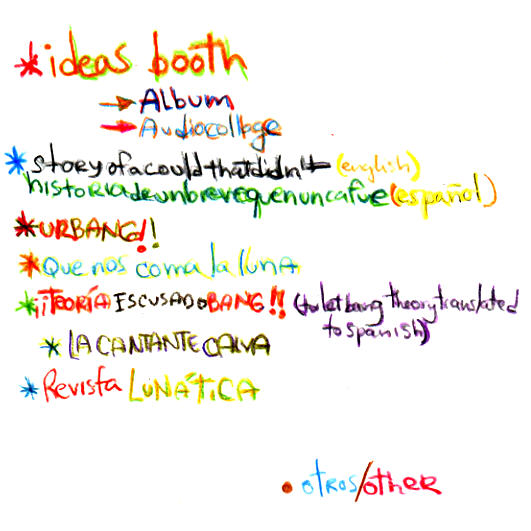 *ideas booth
→ Album
→ Audiocollage
*story of a could that didn't (english)
historia de un breve que nunca fue (español)
*URBANG!!
*Que nos coma la luna
*¡¡TEORÍA ESCUSADO BANG!! (toilet bang theory translated
to spanish)
*LA CANTANTE CALVA
*Revista LUNÁTICA
• otros/other